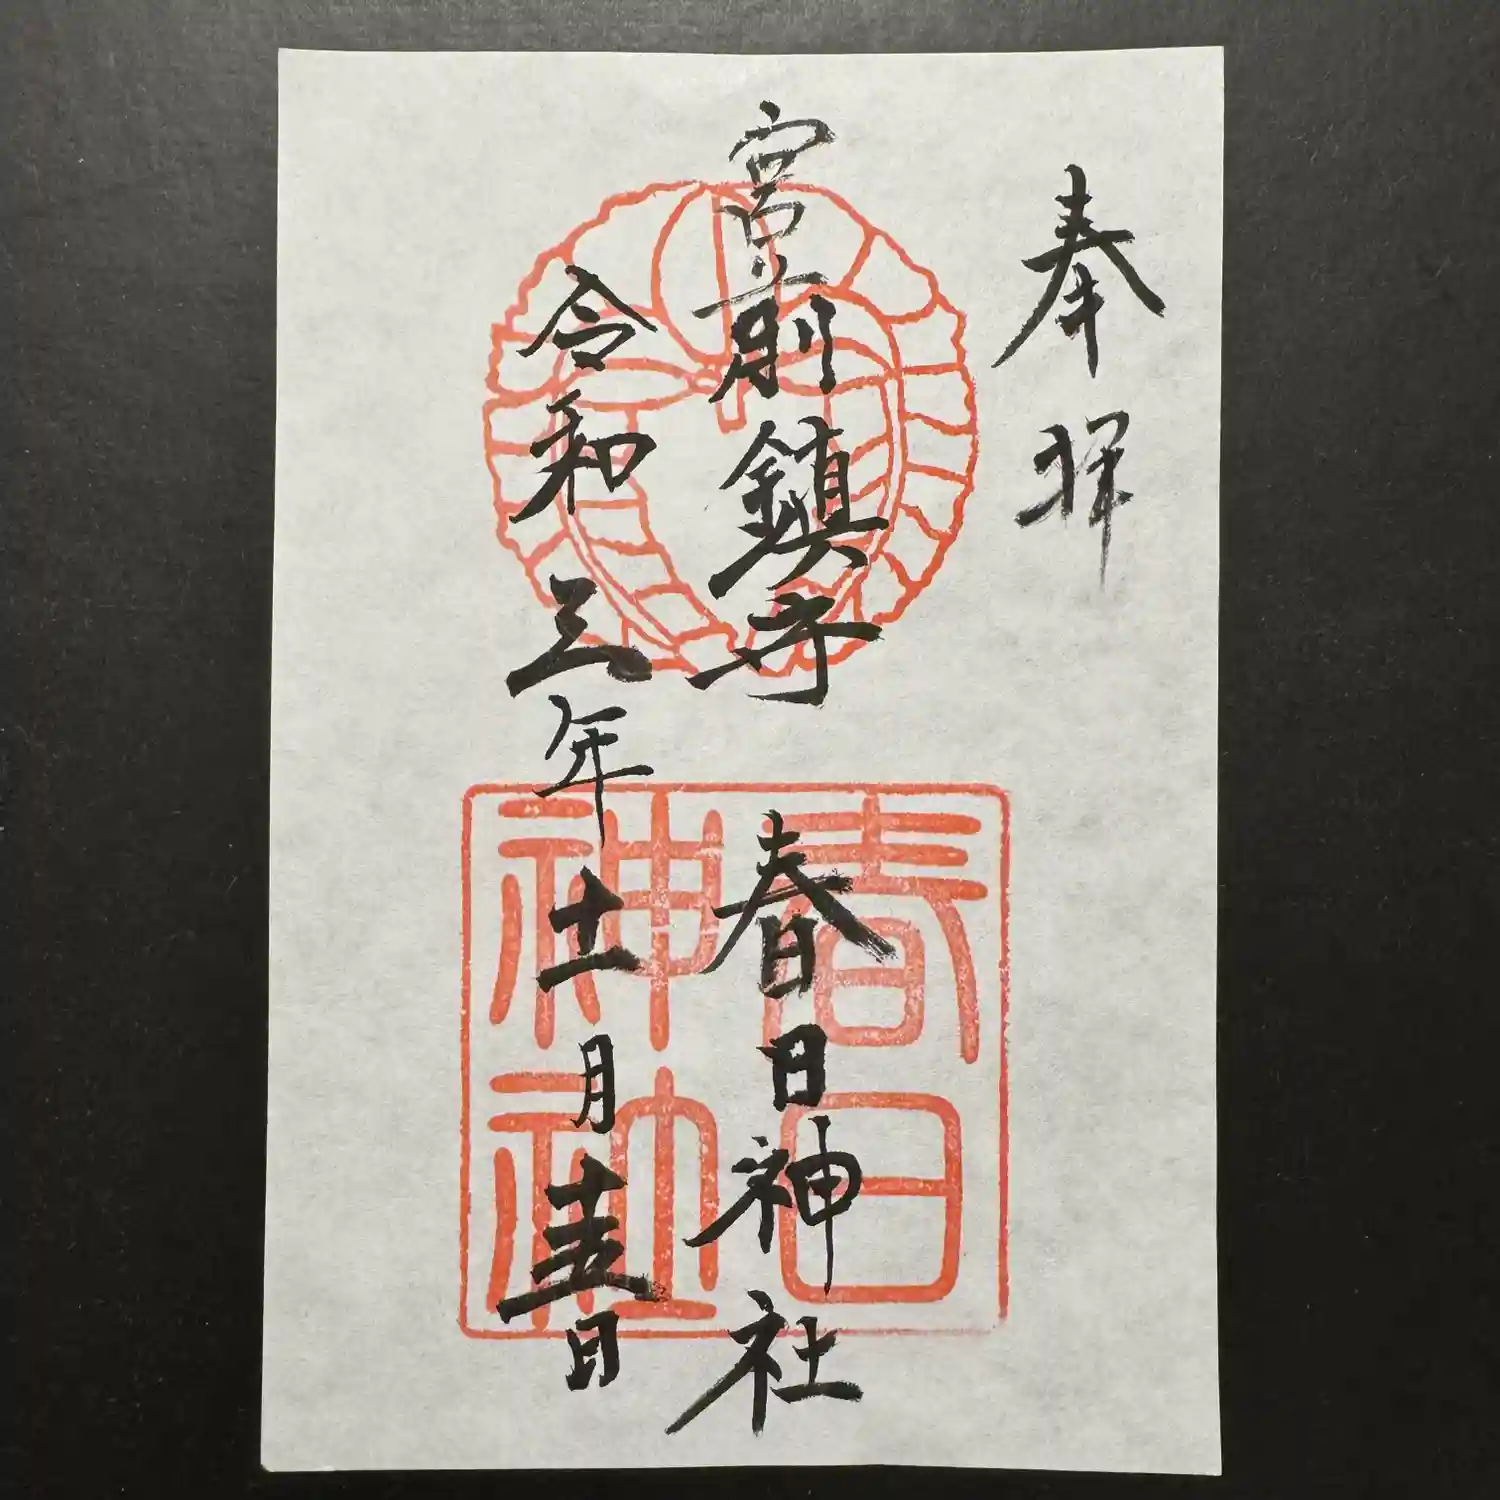 奉拝
宮前鎮守 春日神社
令和三年十一月十五日
春日
神社